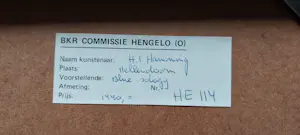 BKR COMMISSIE HENGELO (O)
Naam kunstenaar: H.J.
Plaats: Hellendoorn
Voorstellende: Blue
Afmeting: Nr.:
Prijs: 1440,= HE 114